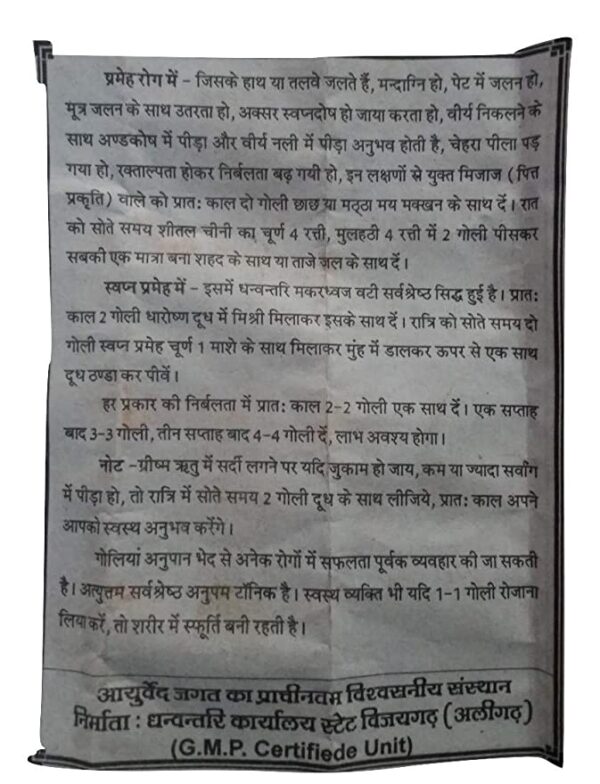 प्रमेह रोग में – जिसके हाथ या तलवे जलते हैं, मन्दाग्नि हो, पेट में जलन हो,
मूत्र जलन के साथ उतरता हो, अक्सर स्वप्नदोष हो जाया करता हो, वीर्य निकलने के
साथ अण्डकोष में पीड़ा और वीर्य नली में पीड़ा अनुभव होती है, चेहरा पीला पड़
गया हो, रक्ताल्पता होकर निर्बलता बढ़ गयी हो, इन लक्षणों से युक्त मिजाज (पित्त
प्रकृति) वाले को प्रात: काल दो गोली छाछ या मठ्ठा मय मक्खन के साथ दें। रात
को सोते समय शीतल चीनी का चूर्ण 4 रत्ती, मुलहठी 4 रत्ती में 2 गोली पीसकर
सबकी एक मात्रा बना शहद के साथ या ताजे जल के साथ दें।
स्वप्न प्रमेह में – इसमें धन्वन्तरि मकरध्वज वटी सर्वश्रेष्ठ सिद्ध हुई है। प्रात:
काल 2 गोली धारोष्ण दूध में मिश्री मिलाकर इसके साथ दें। रात्रि को सोते समय दो
गोली स्वप्न प्रमेह चूर्ण 1 माशे के साथ मिलाकर मुंह में डालकर ऊपर से एक साथ
दूध ठण्डा कर पीवें।
हर प्रकार की निर्बलता में प्रात: काल 2-2 गोली एक साथ दें। एक सप्ताह
बाद 3-3 गोली, तीन सप्ताह बाद 4-4 गोली दें, लाभ अवश्य होगा।
नोट –ग्रीष्म ऋतु में सर्दी लगने पर यदि जुकाम हो जाय, कम या ज्यादा सर्वांग
में पीड़ा हो, तो रात्रि में सोते समय 2 गोली दूध के साथ लीजिये, प्रात: काल अपने
आपको स्वस्थ अनुभव करेंगे।
गोलियां अनुपान भेद से अनेक रोगों में सफलता पूर्वक व्यवहार की जा सकती
है। अत्युत्तम सर्वश्रेष्ठ अनुपम टॉनिक है। स्वस्थ व्यक्ति भी यदि 1-1 गोली रोजाना
लिया करें, तो शरीर में स्फूर्ति बनी रहती है।
आयुर्वेद जगत का प्राचीनतम विश्वसनीय संस्थान
निर्माता : धन्वन्तरि कार्यालय स्टेट विजयगढ़ (अलीगढ़)
(G.M.P. Certifiede Unit)